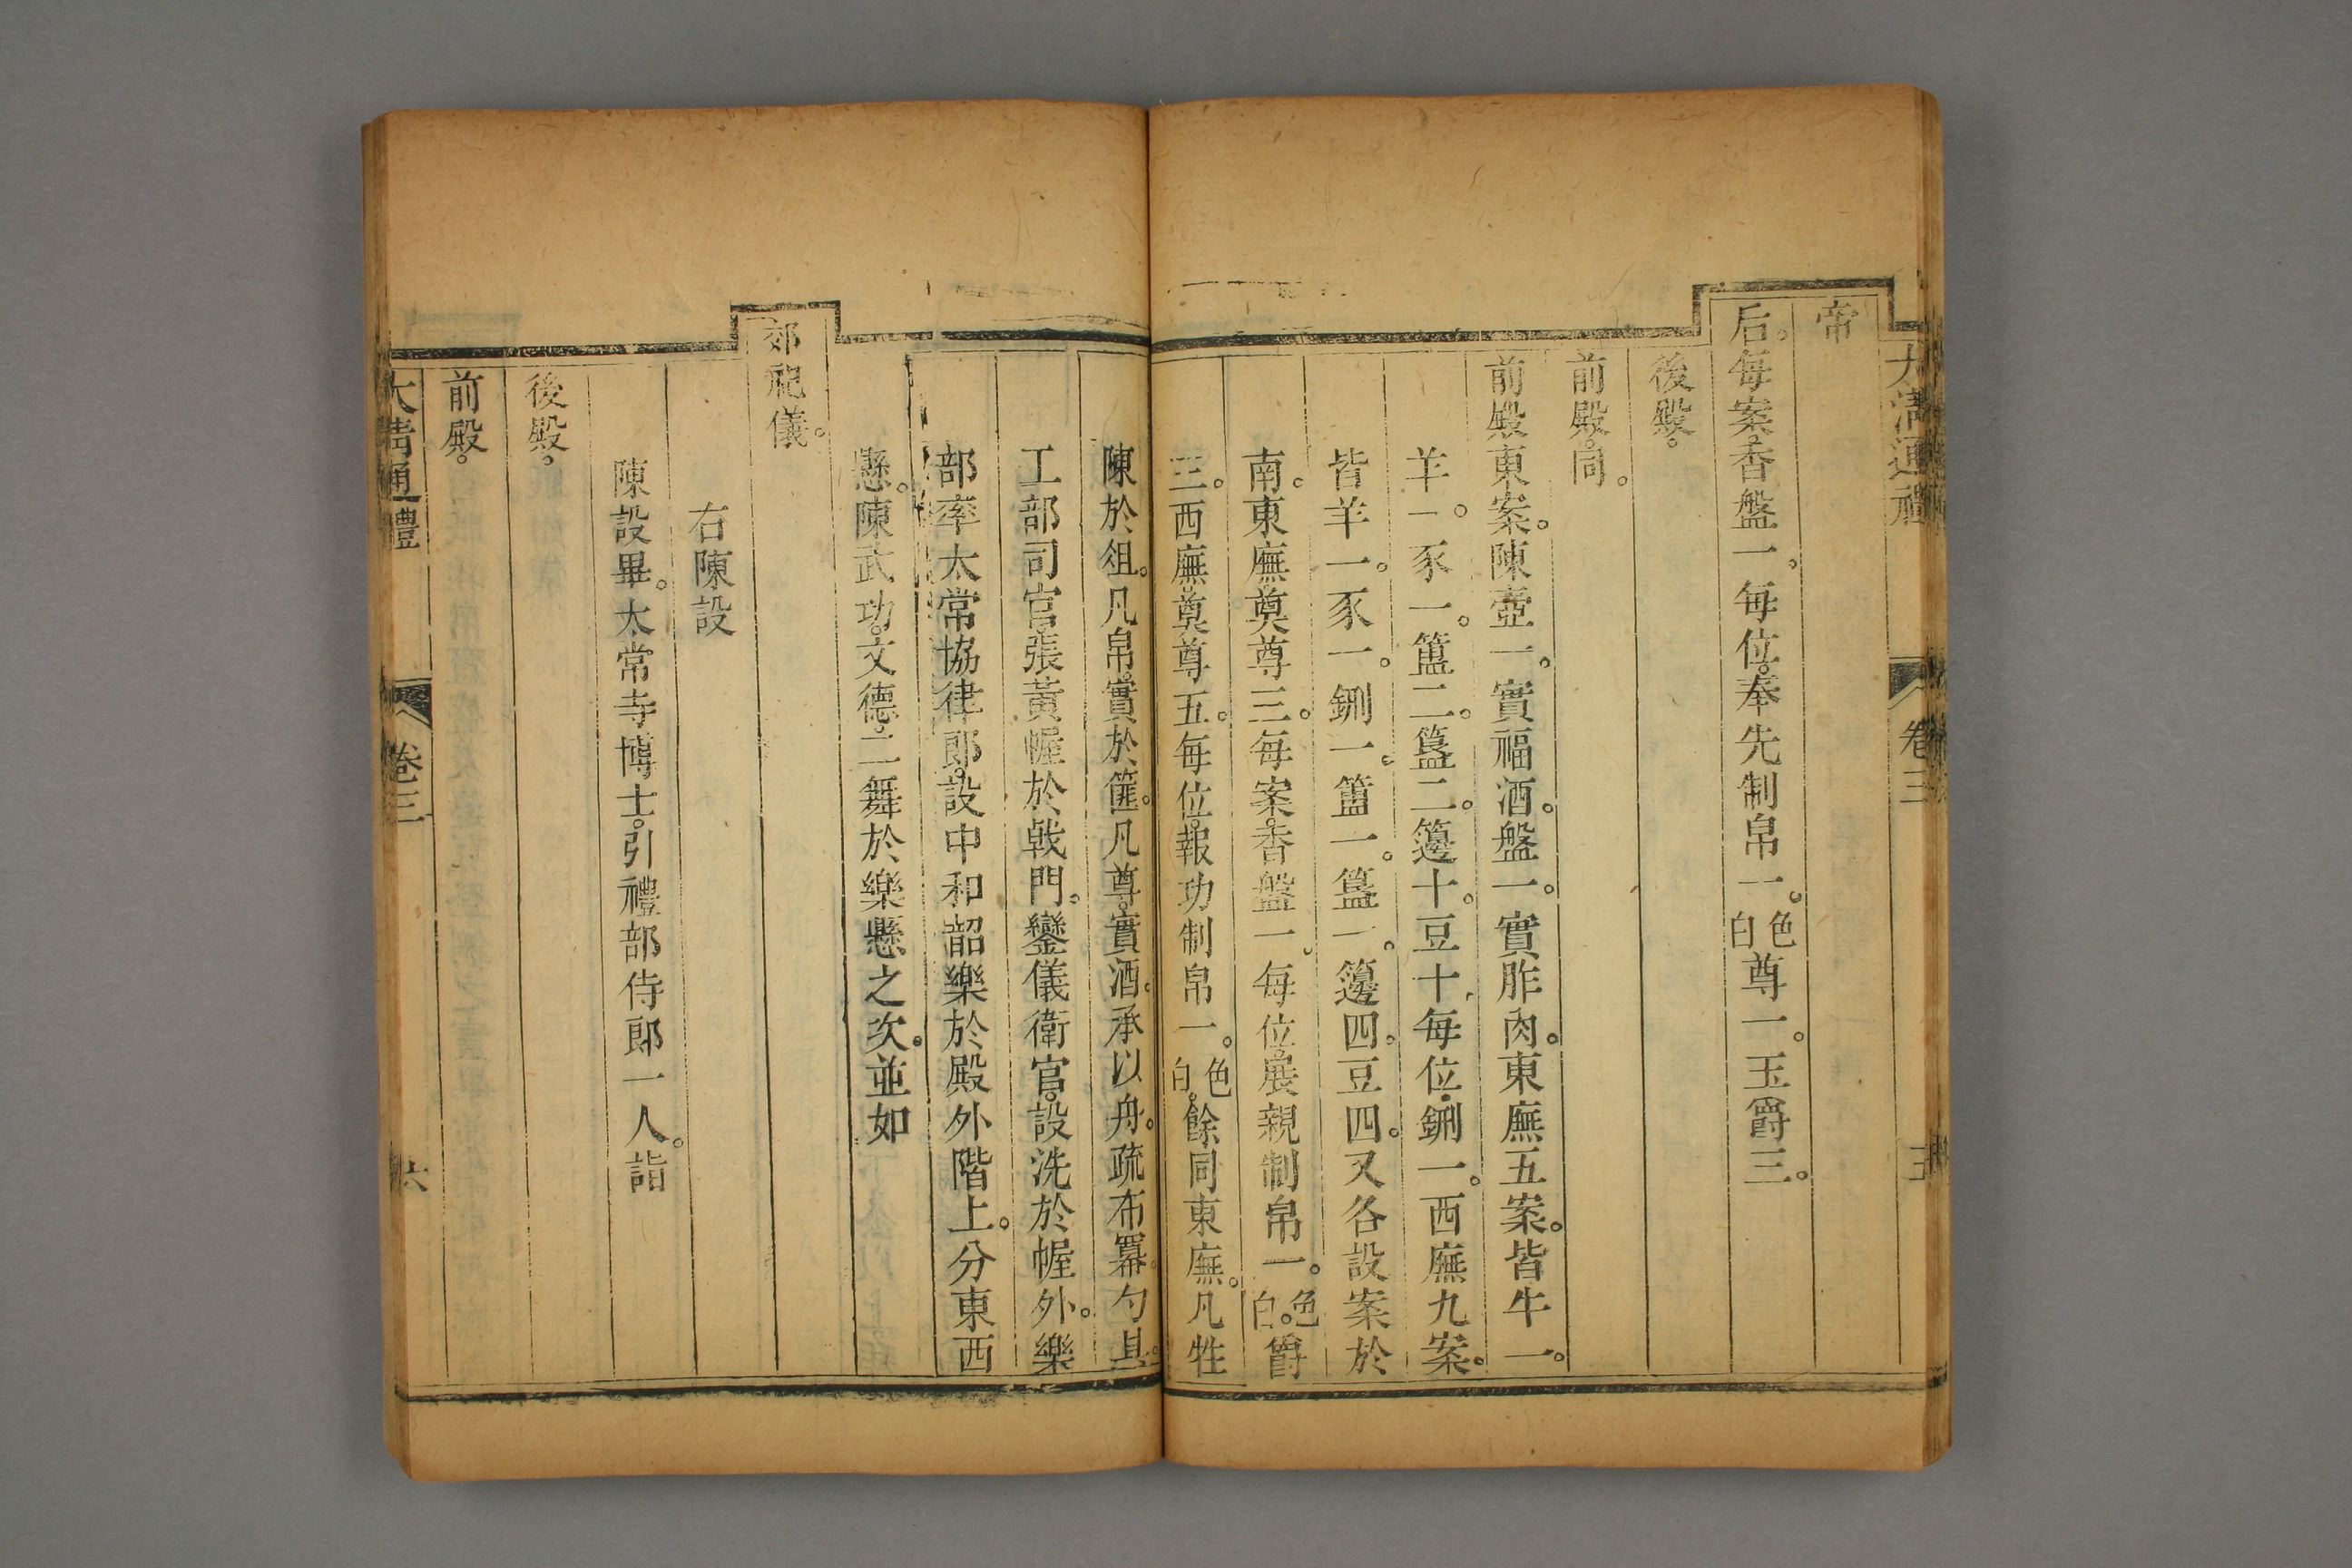 大清通禮 卷三 五
帝
后。每案。香盤一。每位。奉先制帛一。色白尊一。玉爵三。
後殿。
前殿。同。
前殿東案。陳壺一。實福酒。盤一。實胙肉。東廡五案。皆牛一。
羊一。豕一。簠二。簋二。籩十。豆十。每位。鉶一。西廡九案。
皆羊一。豕一。鉶一。簠一。簋一。籩四。豆四。又各設案於
南。東廡。奠尊三。每案。香盤一。每位。展親制帛一。色白。爵
三。西廡。奠尊五。每位。報功制帛一。色白。餘同東廡。凡牲
陳於俎。凡帛。實於篚。凡尊。實酒。承以舟。疏布羃。勺具。
工部司官。張黃幄於戟門。鑾儀衛官。設洗於幄外。樂
部率太常協律郎。設中和韶樂於殿外階上。分東西
懸。陳武功。文德。二舞於樂懸之次。並如
郊祀儀。
右陳設
陳設畢。太常寺博士。引禮部侍郎一人。詣
後殿。
前殿。
大清通禮 卷三 六